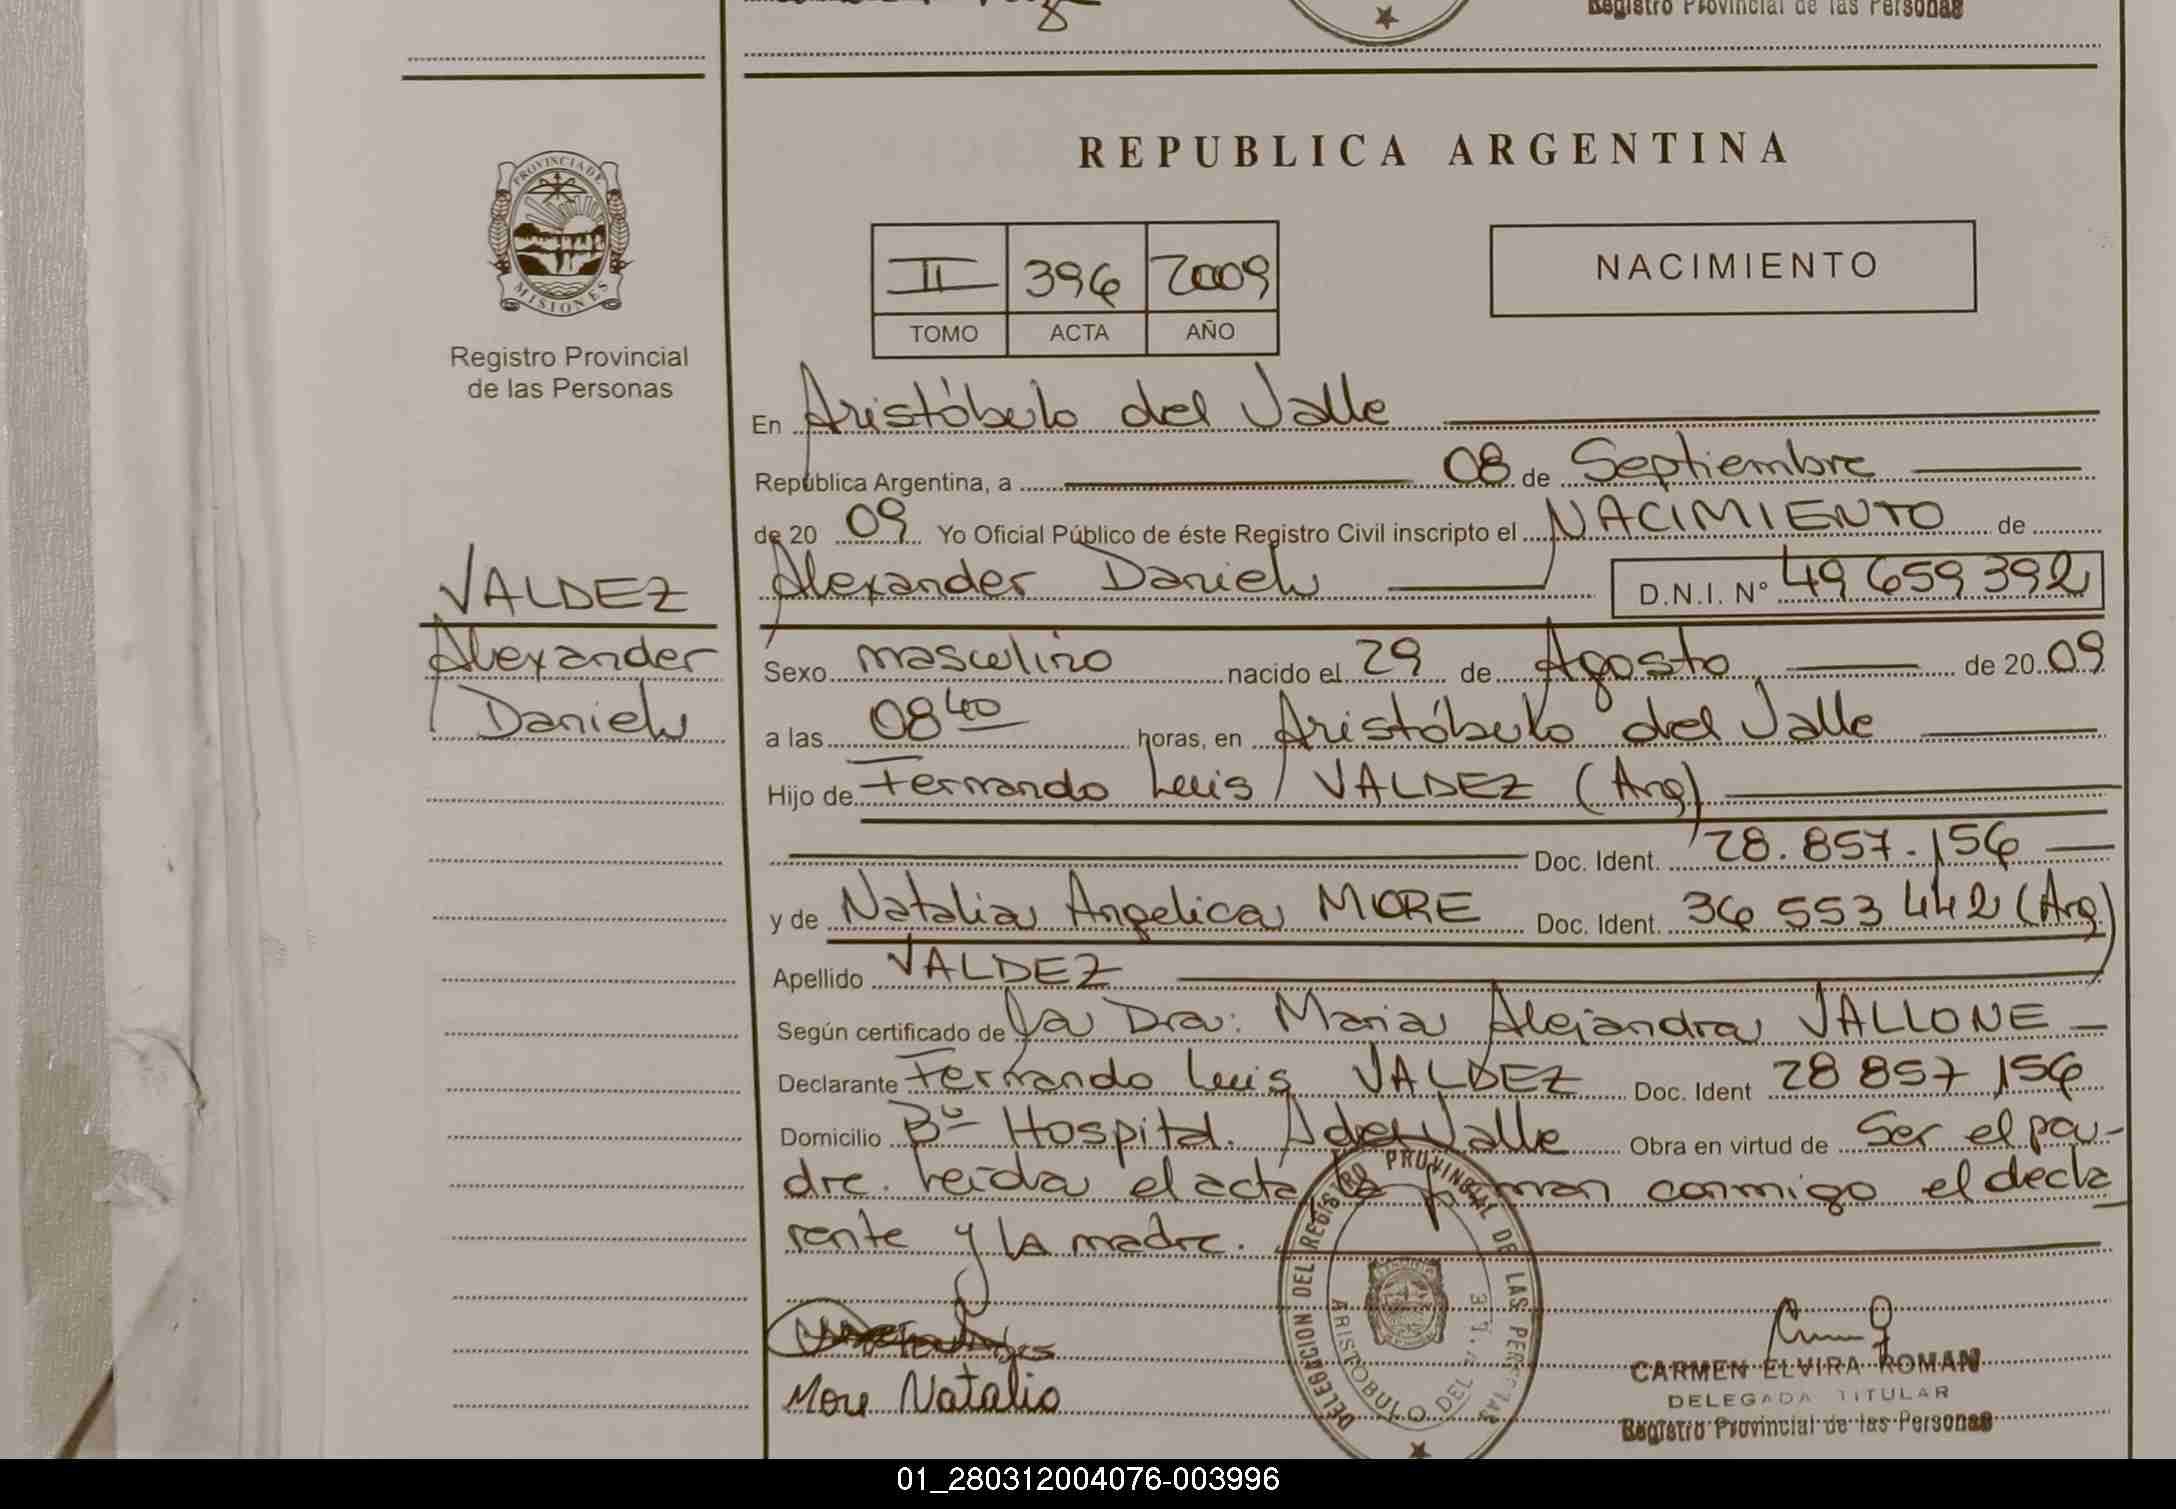 Registro Provincial de las Personas
REPUBLICA ARGENTINA
PROVINCIA DE
MISIONES
Registro Provincial
de las Personas
II 396 2009
TOMO ACTA AÑO
NACIMIENTO
En Aristóbulo del Valle
República Argentina, a 08 de Septiembre
de 20 09 Yo Oficial Público de éste Registro Civil inscripto el NACIMIENTO de
VALDEZ
Alexander
Daniel
Alexander Daniel D.N.I. Nº 49 659 392
Sexo masculino nacido el 29 de Agosto de 20 09
a las 08 40 horas, en Aristóbulo del Valle
Hijo de Fernando Luis VALDEZ (Arg)
Doc. Ident. 28.857.156
y de Natalia Angelica MORE Doc. Ident. 36 553 442 (Arg)
Apellido VALDEZ
Según certificado de La Dra: Maria Alejandra VALLONE
Declarante Fernando Luis VALDEZ Doc. Ident 28 857 156
Domicilio Bº Hospital. A del Valle Obra en virtud de Ser el pa-
dre. Leida el acta la firman conmigo el decla
rante y la madre.
More Natalia
DELEGACION DEL REGISTRO PROVINCIAL DE LAS PERSONAS
ARISTOBULO DEL VALLE
CARMEN ELVIRA ROMAN
DELEGADA TITULAR
Registro Provincial de las Personas
01_280312004076-003996